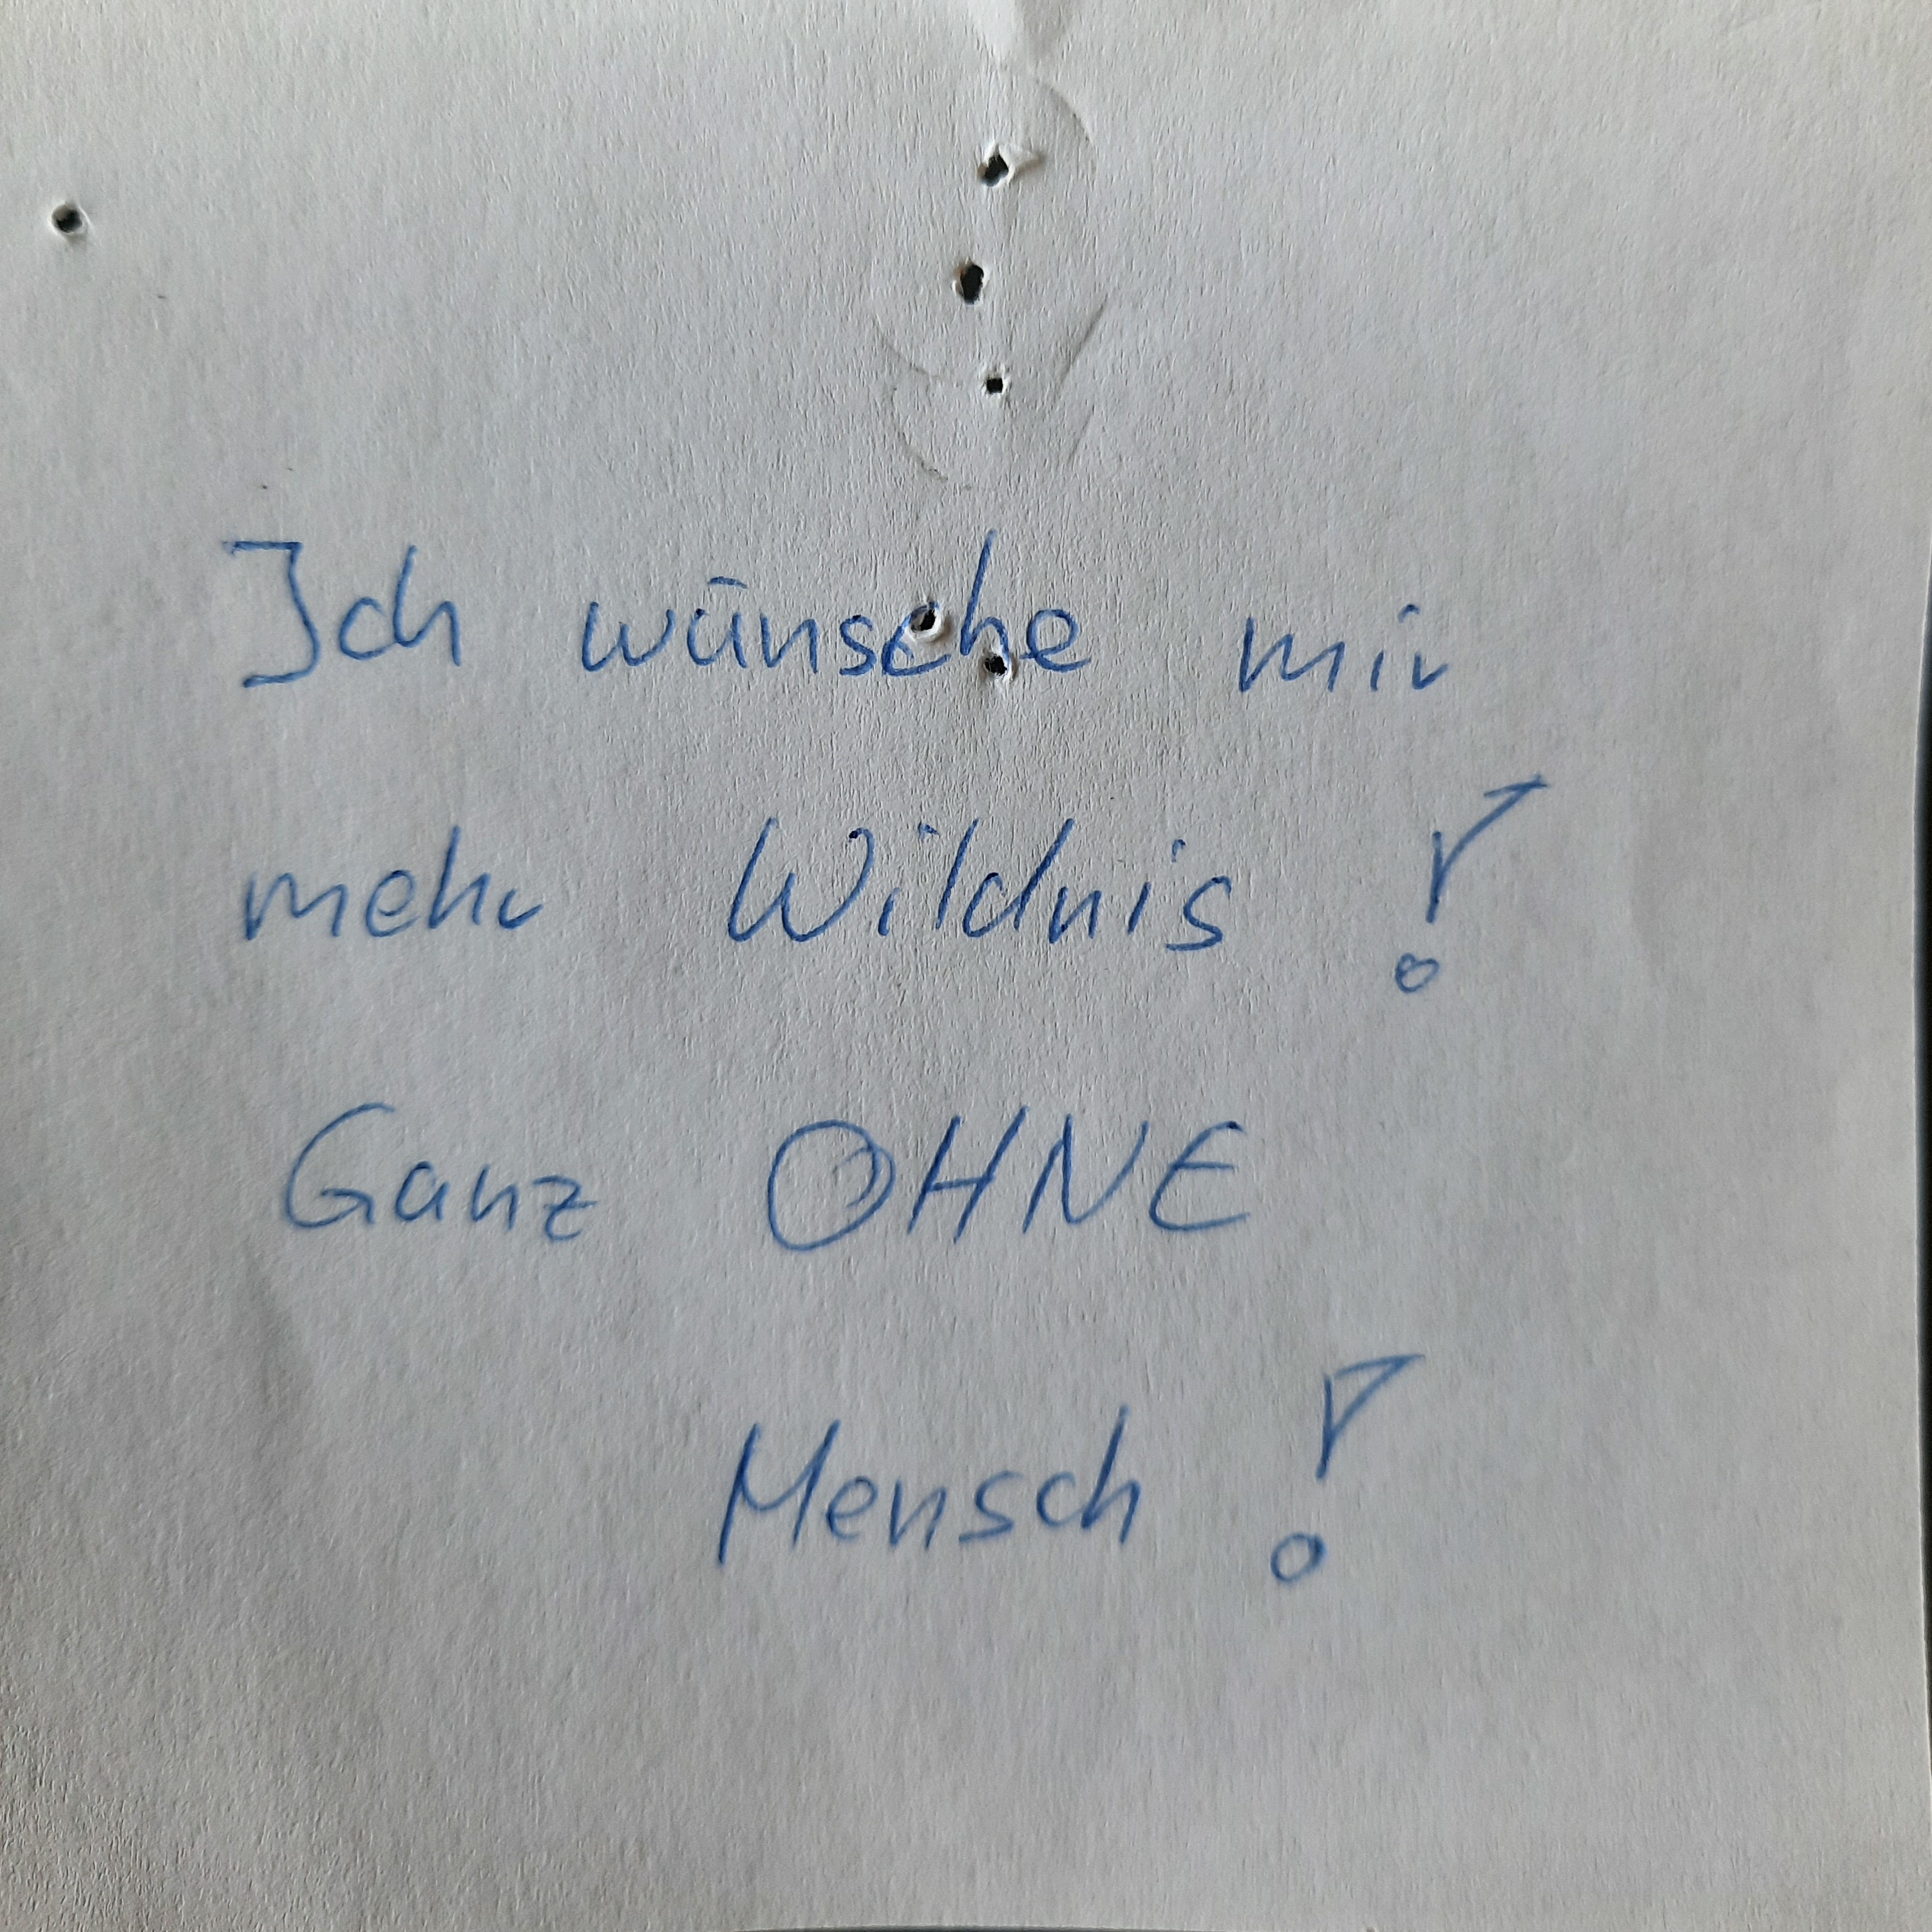 Ich wünsche mir
mehr Wildnis !
Ganz OHNE
Mensch !